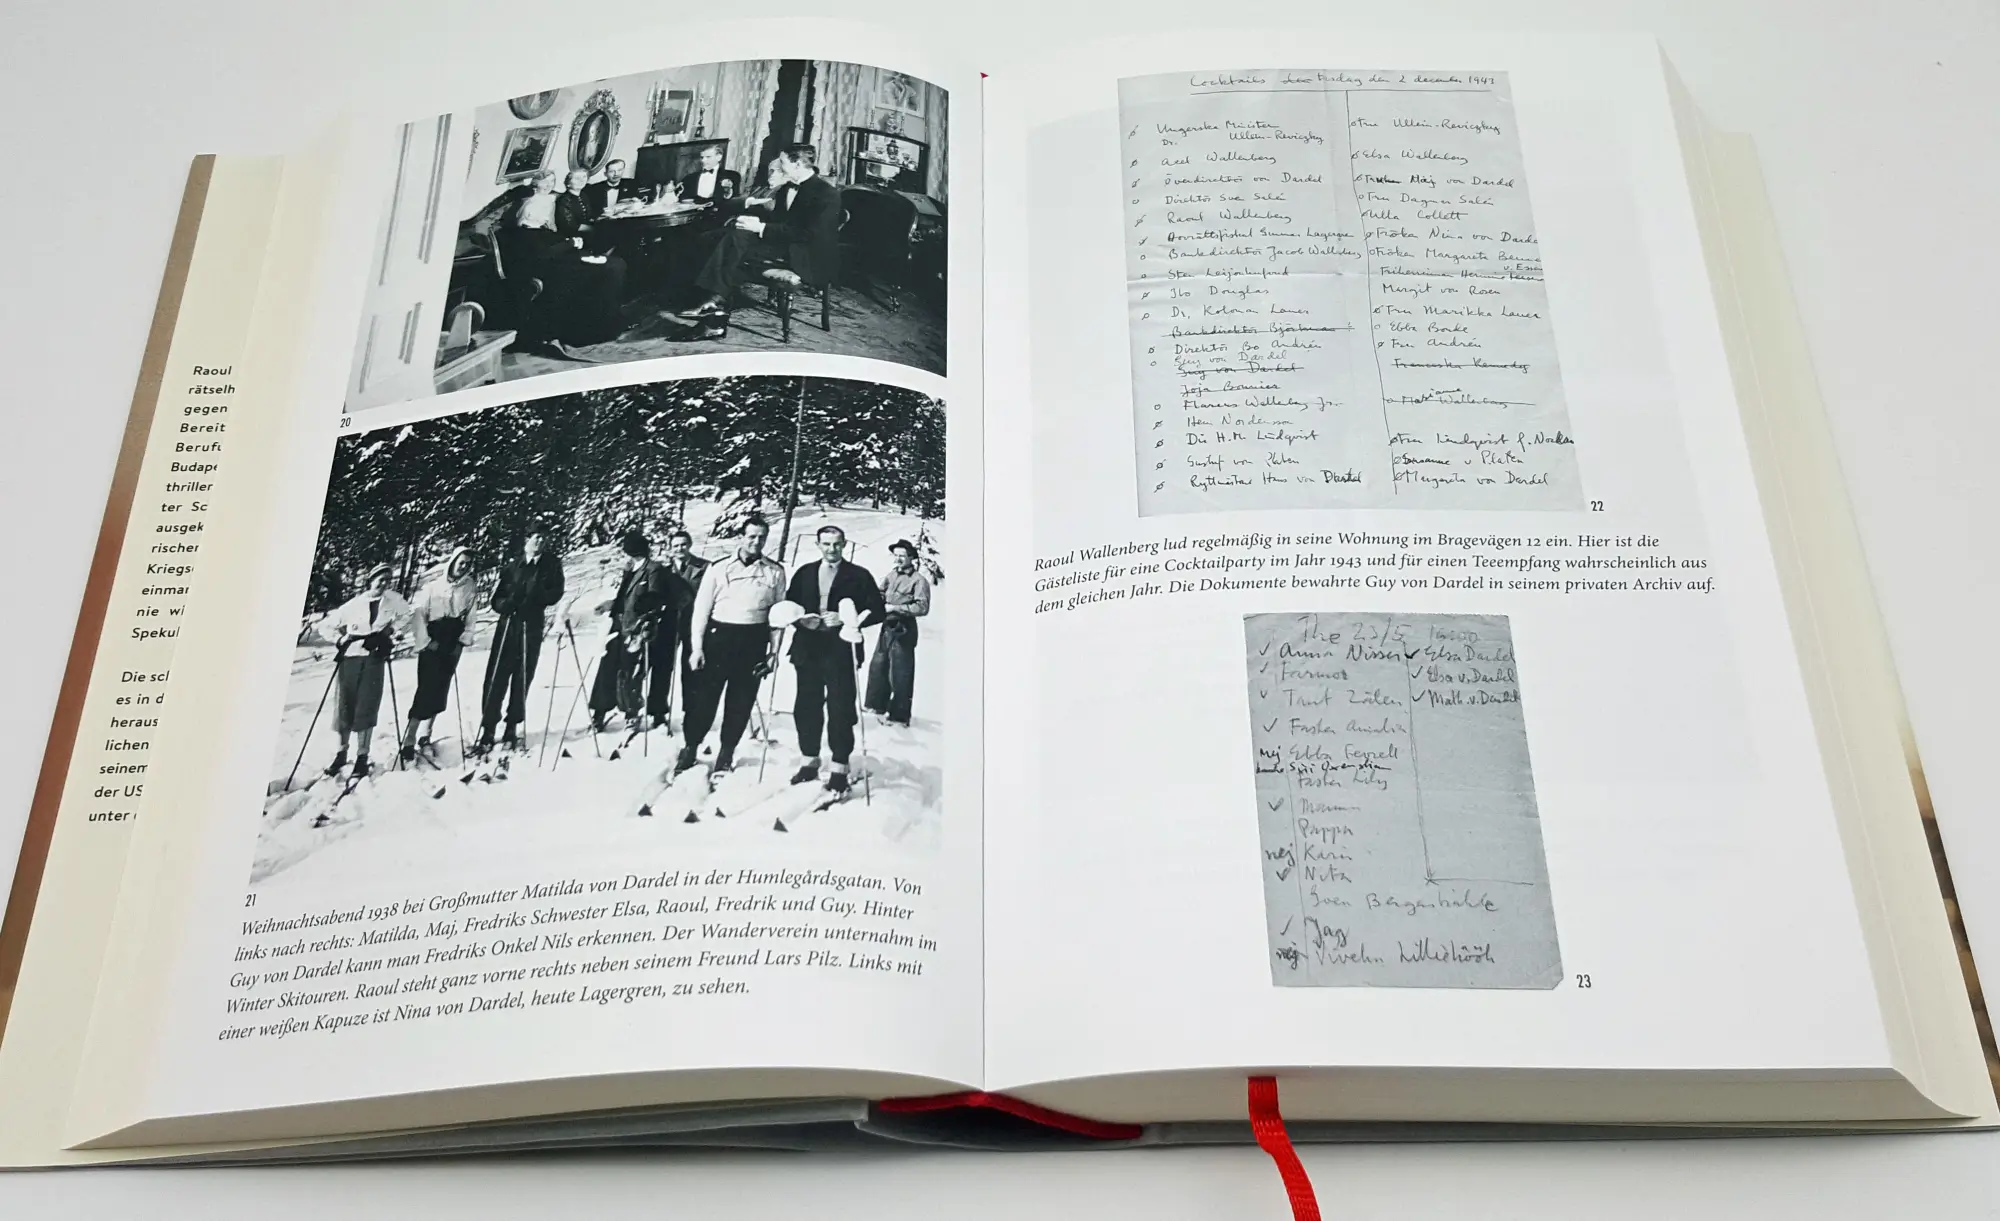 Raoul
rätselh
gegen
Bereit
Berufu
Budape
thriller
ter Sc
ausgek
rischer
Kriegs
einmar
nie wi
Spekul
Die scl
es in d
heraus
lichen
seinem
der US
unter
20
21
Weihnachtsabend 1938 bei Großmutter Matilda von Dardel in der Humlegårdsgatan. Von
links nach rechts: Matilda, Maj, Fredriks Schwester Elsa, Raoul, Fredrik und Guy. Hinter
Guy von Dardel kann man Fredriks Onkel Nils erkennen. Der Wanderverein unternahm im
Winter Skitouren. Raoul steht ganz vorne rechts neben seinem Freund Lars Pilz. Links mit
einer weißen Kapuze ist Nina von Dardel, heute Lagergren, zu sehen.
Cocktails tisdag den 2 december 1943
Ungerska Ministern Fru Ullein-Reviczky
Dr. Ullein-Reviczky
Axel Wallenberg Elsa Wallenberg
Överdirektör von Dardel Maj von Dardel
Direktör Sven Salén Fru Dagmar Salén
Raoul Wallenberg Ulla Collett
Lagergren Fröken Nina von Dardel
Bankdirektör Jacob Wallenberg Fröken Margareta
v. Essen
Sten Leijonhufvud Friherrinnan
Ibo Douglas Margit von Rosen
Dr. Koloman Lauer Fru Marikka Lauer
Bankdirektör Ebba Bonde
Direktör Bo Andrén Fru Andrén
Guy von Dardel
Guy von Dardel Kennedy
Joja Bonnier
Wallenberg Jr. Wallenberg
Herr Nordenson
Dir H.M. Lindqvist Fru Lindqvist f. Norden
Gustaf von Platen Susanne v Platen
Ryttmästar Hans von Dardel Margareta von Dardel
22
Raoul Wallenberg lud regelmäßig in seine Wohnung im Bragevägen 12 ein. Hier ist die
Gästeliste für eine Cocktailparty im Jahr 1943 und für einen Teeempfang wahrscheinlich aus
dem gleichen Jahr. Die Dokumente bewahrte Guy von Dardel in seinem privaten Archiv auf.
The 23/5
Anna Nisser Elsa Dardel
Farmor Elsa v. Dardel
Tant Math. v. Dardel
Faster Amalia
nej Ebba
Siri Oxenstiern
Faster Lily
Mamma
Pappa
nej Karin
Nita
Sven Bergastråhle
Jag
nej Vivekn Lilliehöök
23